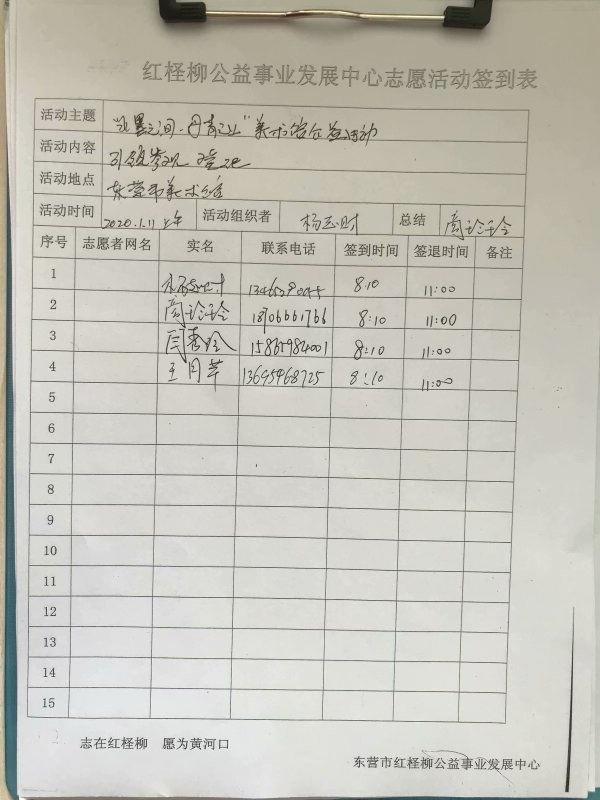 红柽柳公益事业发展中心志愿活动签到表
活动主题 "水墨之间·丹青之上"美术馆公益活动
活动内容 引领参观
活动地点 东营市美术馆
活动时间 2020.1.11 上午 活动组织者 杨玉财 总结 周玲玲
序号 志愿者网名 实名 联系电话 签到时间 签退时间 备注
1 8:10 11:00
2 周玲玲 8:10 11:00
3 闫春玲 15865984001 8:10 11:00
4 王月苹 13695468725 8:10 11:00
5
6
7
8
9
10
11
12
13
14
15
志在红柽柳 愿为黄河口
东营市红柽柳公益事业发展中心